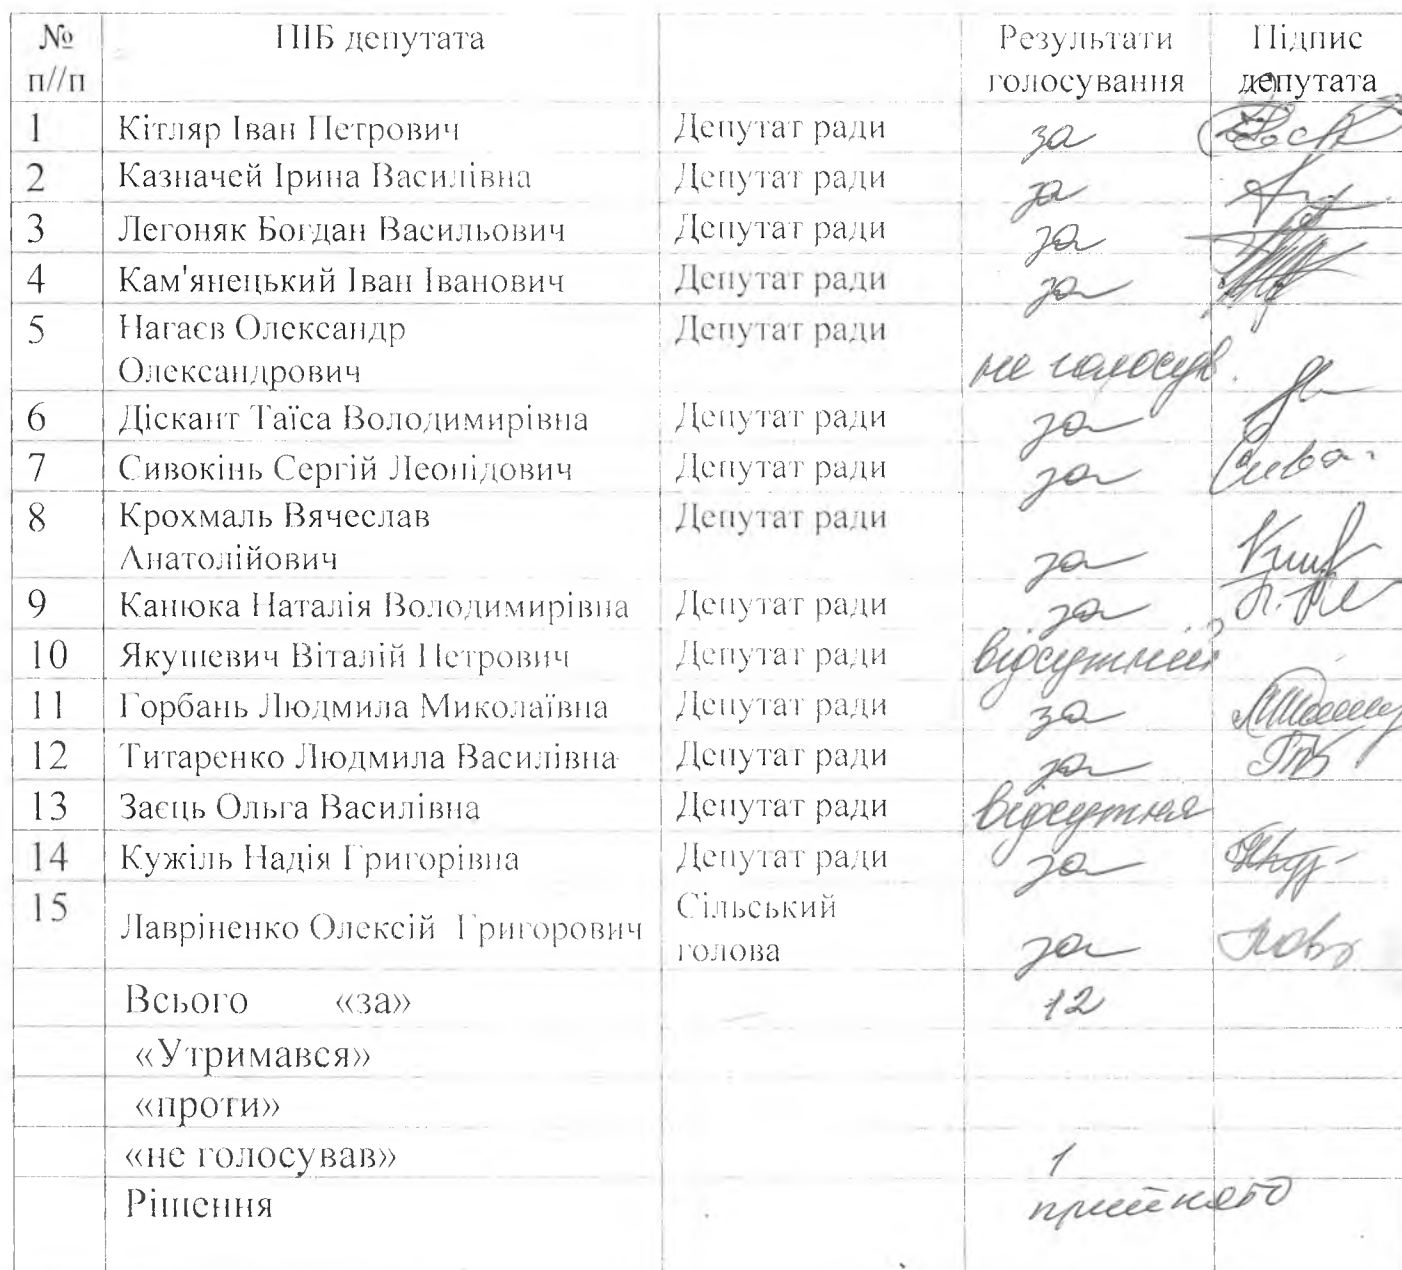 № ПІБ депутата Результати Підпис
п//п голосування депутата
1 Кітляр Іван Петрович Депутат ради за
2 Казначей Ірина Василівна Депутат ради за
3 Легоняк Богдан Васильович Депутат ради за
4 Кам'янецький Іван Іванович Депутат ради за
5 Нагаєв Олександр Депутат ради
Олександрович не голосув.
6 Діскант Таїса Володимирівна Депутат ради за
7 Сивокінь Сергій Леонідович Депутат ради за
8 Крохмаль Вячеслав Депутат ради
Анатолійович за
9 Канюка Наталія Володимирівна Депутат ради за
10 Якушевич Віталій Петрович Депутат ради відсутній
11 Горбань Людмила Миколаївна Депутат ради за
12 Титаренко Людмила Василівна Депутат ради за
13 Заєць Ольга Василівна Депутат ради відсутня
14 Кужіль Надія Григорівна Депутат ради за
15 Лавріненко Олексій Григорович Сільський
голова за
Всього «за» 12
«Утримався»
«проти»
«не голосував» 1
Рішення прийнято